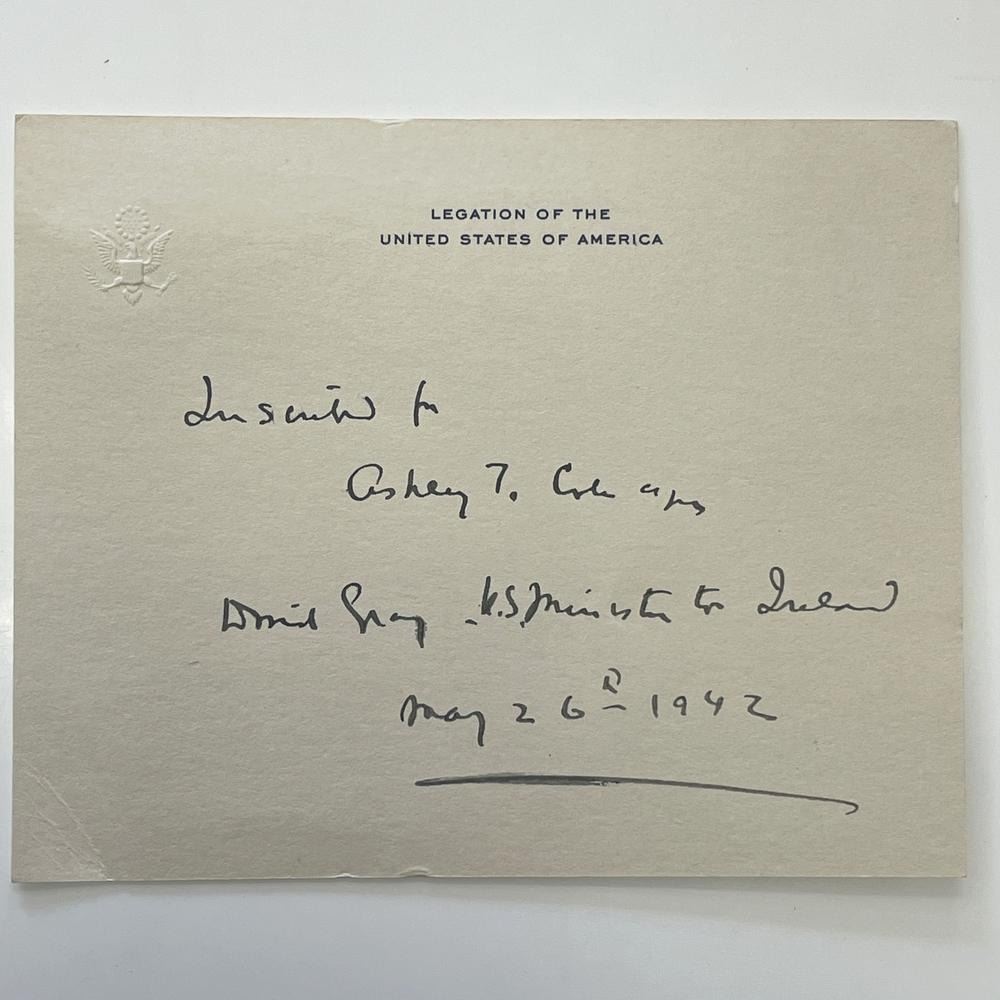 LEGATION OF THE
UNITED STATES OF AMERICA
Inscribed for
Ashley T. Cole
David Gray U.S. Minister to Ireland
May 26th 1942